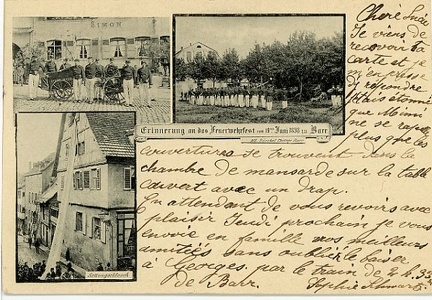 SIMON
Erinnerung an das Feuerwehrfest vom 19ten Juni 1898 zu Barr
Rettungsschlauch
Chère Lucie
Je viens de
recevoir ta
carte et je
m'empresse
d'y répondre
étonné
que Maman
ne se rappelle
plus que les
couvertures se trouvent dans la
chambre de mansarde sur la table
couvert avec un drap.
En attendant de vous revoir avec
plaisir Jeudi prochain je vous
envoie en famille nos meilleurs
amitiés sans oublier le baiser
à Georges. par le train de 2 h. 33
de Barr. Sophie Schwartz